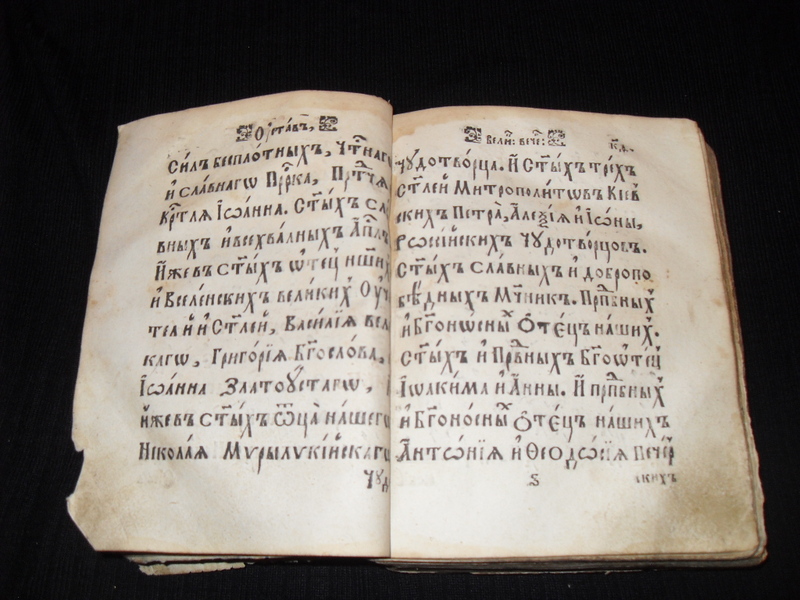 Оуста́въ,
Си́лъ безпло́тныхъ, Чⷭ҇тна́гѡ
и҆ сла́внагѡ Прⷪ҇ро́ка, Прⷣте́чѧ
крⷭ҇ти́телѧ І҆ѡа́нна. Ст҃ы́хъ сла́
вныхъ и҆ всехва́лныхъ А҆пⷭ҇лъ
И҆́же въ ст҃ы́хъ ѻ҆те́цъ на́шихъ
и҆ Вселе́нскихъ вели́кихъ Оу҆чи́
телей и҆ Ст҃и́телей, Васи́лїѧ вели́
кагѡ, Григо́рїѧ Бг҃осло́ва,
І҆ѡа́нна Златоу́стагѡ,
и҆́же въ ст҃ы́хъ Ѻ҆тца̀ на́шегѡ
Нікола́ѧ Мѵрълѷкі́йскагѡ
Чуд
Вели́: вече́:
к҃д.
Чудотво́рца. И҆ Ст҃ы́хъ тре́хъ
Ст҃лей Митрополи́тѡвъ Кі́ев
скихъ Петра̀, А҆леѯі́ѧ и҆ І҆ѡ́ны,
Рѡссі́йскихъ Чудотво́рцовъ.
Ст҃ы́хъ сла́вныхъ и҆ добропо
бѣ́дныхъ Мч҃никъ. Прпⷣбныхъ
и҆ Бг҃онѡ́сныхъ Ѻ҆те́цъ на́шихъ.
Ст҃ы́хъ и҆ Прв҃ныхъ Бг҃оѡте́цъ
І҆ѡаки́ма и҆ А҆́нны. И҆ прпⷣбныхъ
и҆ Бг҃оно́сныхъ Ѻ҆те́цъ на́шихъ
А҆нтѡ́нїѧ и҆ Ѳеодѡ́сїѧ Пече́р
ѕ
скихъ